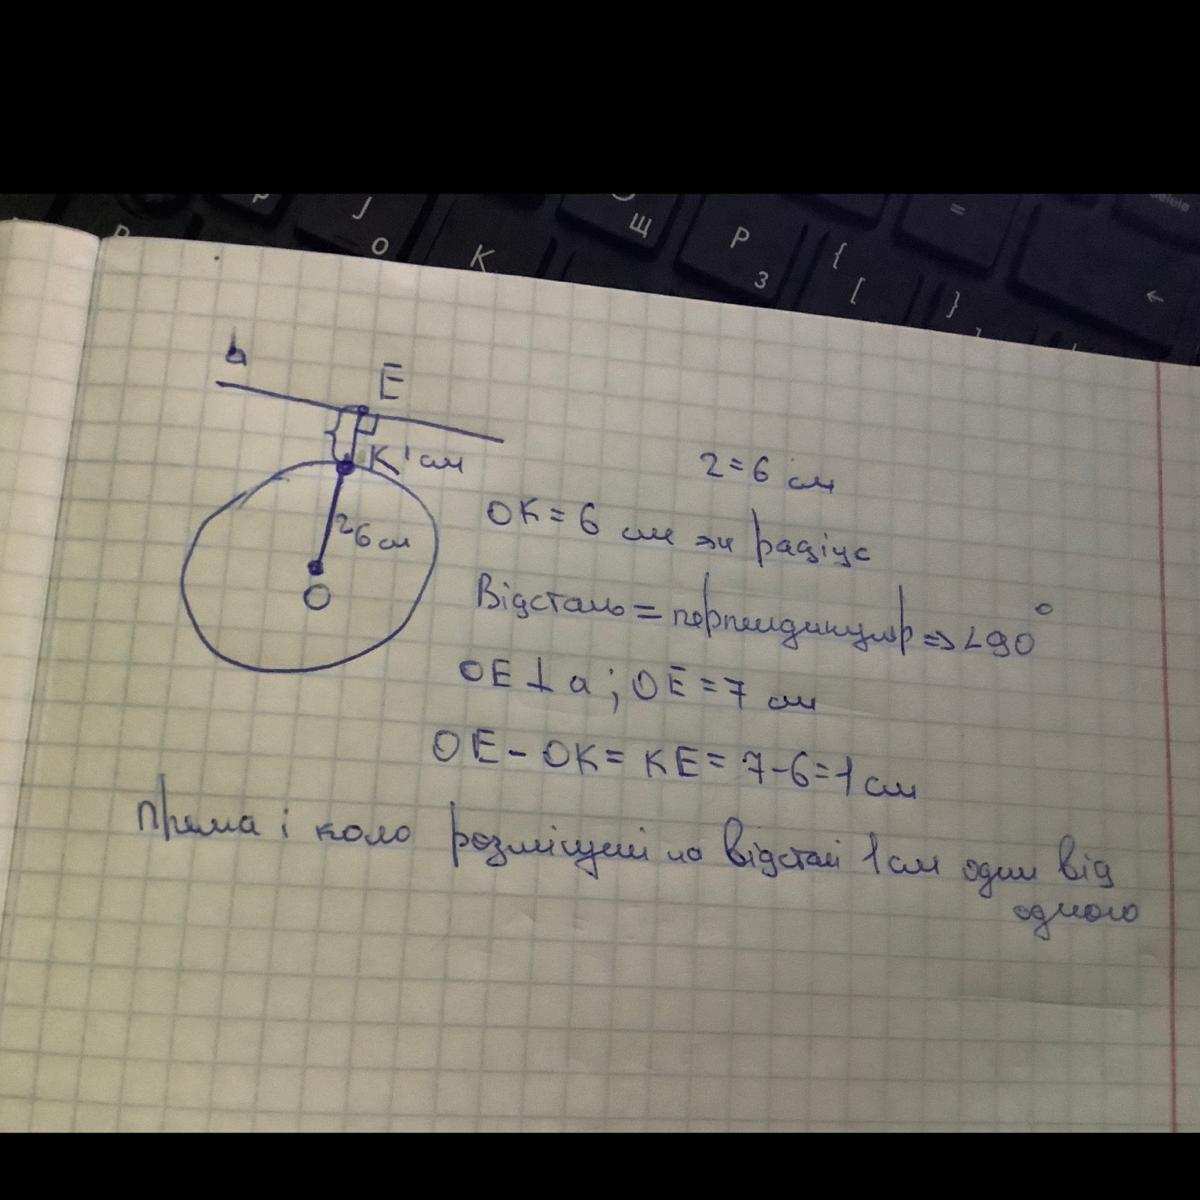 J
О
K
Щ
P
З
{
[
}
=
←
a
E
K 1 см
r 6 см
O
r = 6 см
OK = 6 см як радіус
Відстань = перпендикуляр => ∠90°
OE ⊥ a ; OE = 7 см
OE - OK = KE = 7-6=1 см
Пряма і коло розміщені на відстані 1 см один від
одного